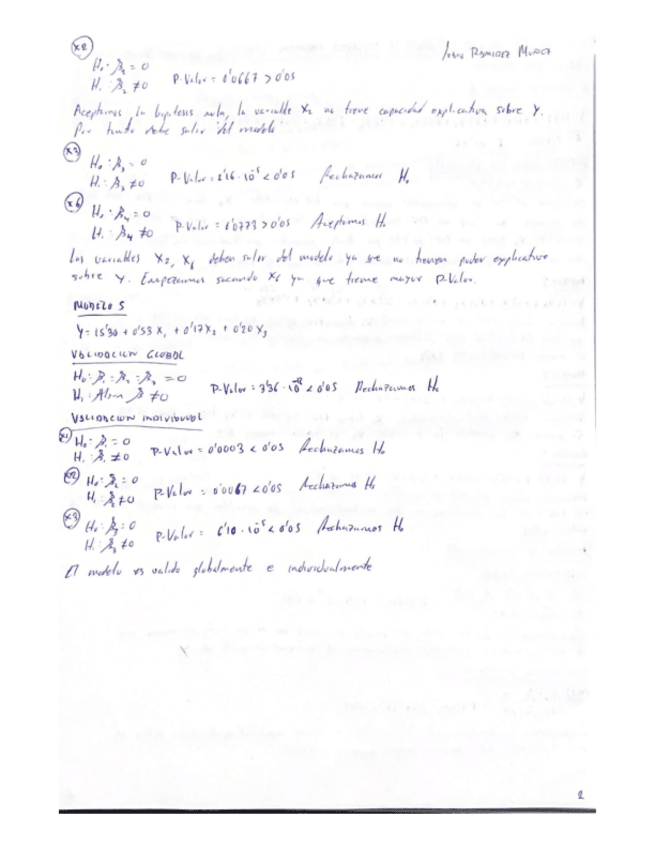 X2
H₀: β₂ = 0
H₁: β₂ ≠ 0 P-Valor = 0'0667 > 0'05
Aceptamos la hipotesis nula, la variable X₂ no tiene capacidad explicativa sobre Y.
Por tanto debe salir del modelo
X3
H₀: β₃ = 0
H₁: β₃ ≠ 0 P-Valor = 2'16 · 10⁻⁵ < 0'05 Rechazamos H₀
X6
H₀: β₄ = 0
H₁: β₄ ≠ 0 P-Valor = 0'0773 > 0'05 Aceptamos H₀
Las variables X₂, X₆ deben salir del modelo ya que no tienen poder explicativo
sobre Y. Empezamos sacando X₆ ya que tiene mayor P-Valor.
MODELO 5
Y = 15'30 + 0'53 X₁ + 0'17 X₂ + 0'20 X₃
VALIDACION GLOBAL
H₀: β₁ = β₂ = β₃ = 0
H₁: Algun β ≠ 0 P-Valor = 3'36 · 10 < 0'05 Rechazamos H₀
VALIDACION INDIVIDUAL
X1
H₀: β₁ = 0
H₁: β₁ ≠ 0 P-Valor = 0'0003 < 0'05 Rechazamos H₀
X2
H₀: β₂ = 0
H₁: β₂ ≠ 0 P-Valor = 0'0067 < 0'05 Rechazamos H₀
X3
H₀: β₃ = 0
H₁: β₃ ≠ 0 P-Valor = 6'10 · 10⁻⁵ < 0'05 Rechazamos H₀
El modelo es valido globalmente e individualmente
2